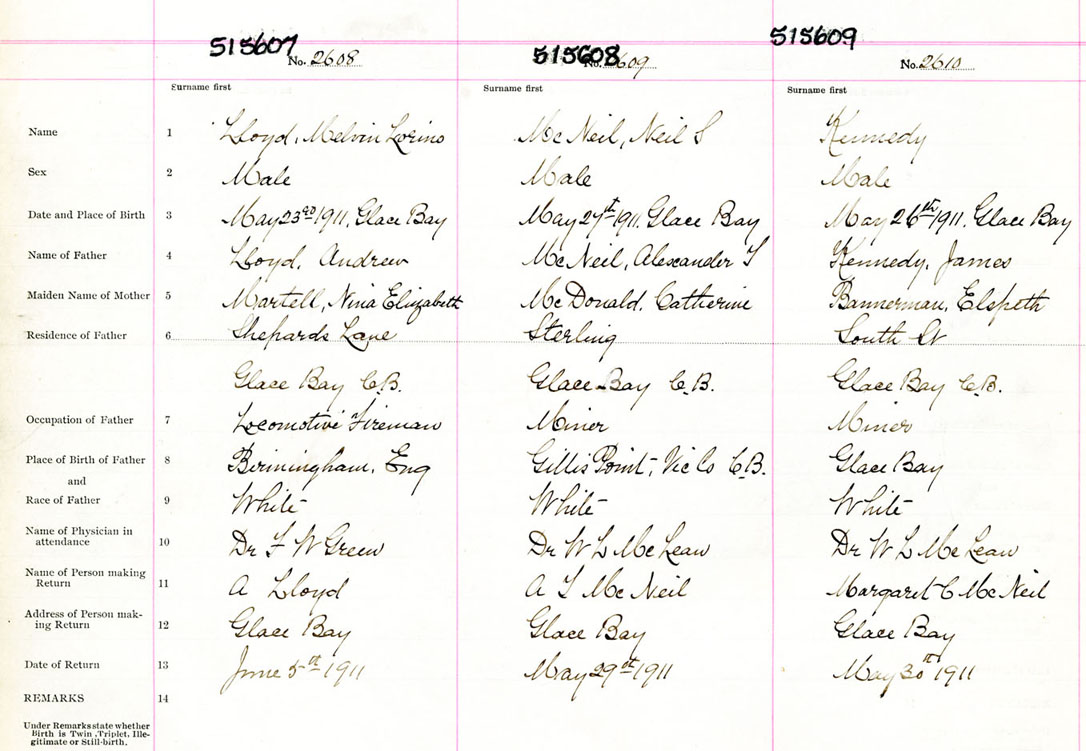 515607 515608 515609
No. 2608 No. 2609 No. 2610
Surname first Surname first Surname first
Name 1 Lloyd, Melvin Lorino McNeil, Neil S Kennedy
Sex 2 Male Male Male
Date and Place of Birth 3 May 23rd 1911, Glace Bay May 27th 1911, Glace Bay May 26th 1911, Glace Bay
Name of Father 4 Lloyd, Andrew McNeil, Alexander S Kennedy, James
Maiden Name of Mother 5 Martell, Nina Elizabeth McDonald, Catherine Bannerman, Elspeth
Residence of Father 6 Shepards Lane Sterling South St
Glace Bay C.B. Glace Bay C.B. Glace Bay C.B.
Occupation of Father 7 Locomotive Fireman Miner Miner
Place of Birth of Father 8 Birmingham, Eng Gillis Point, Vic Co C.B. Glace Bay
and
Race of Father 9 White White White
Name of Physician in
attendance 10 Dr F W Green Dr W L McLean Dr W L McLean
Name of Person making
Return 11 A Lloyd A S McNeil Margaret C McNeil
Address of Person mak-
ing Return 12 Glace Bay Glace Bay Glace Bay
Date of Return 13 June 5th 1911 May 29th 1911 May 30th 1911
REMARKS 14
Under Remarks state whether
Birth is Twin, Triplet, Ille-
gitimate or Still-birth.